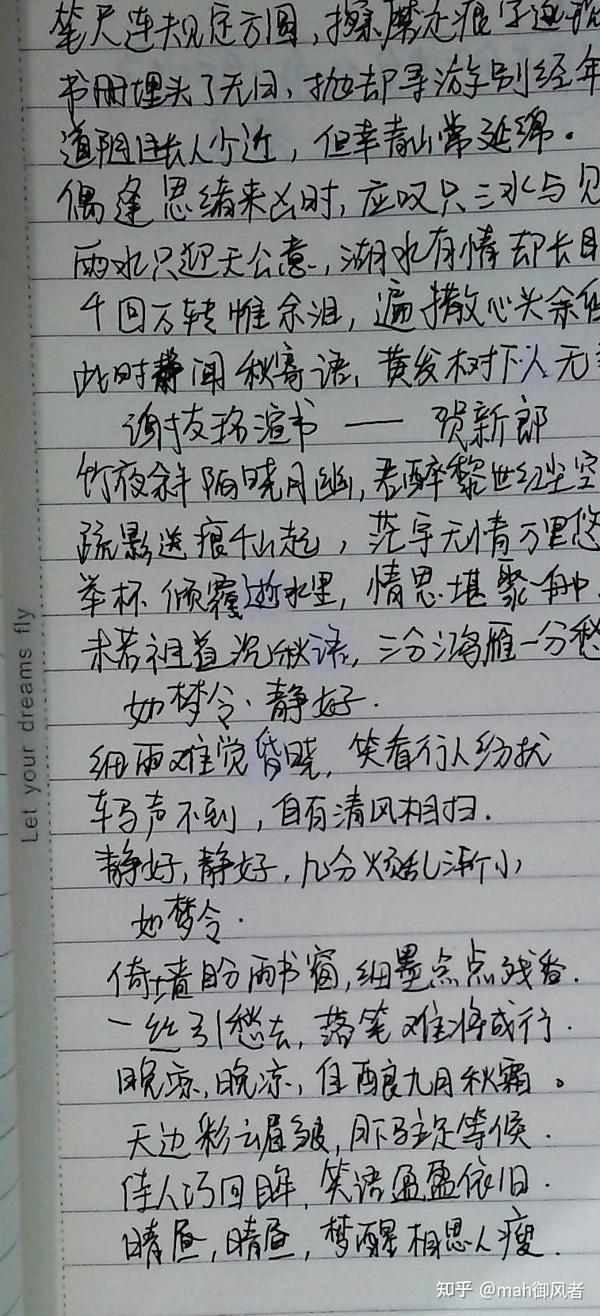 笔尺连规定方圆,擦摩之痕字迹
书册埋头了无日,抛却寻游别经年
道阻且长人少近,但幸青山常延绵。
偶逢思绪来凶时,应叹只三水与见
雨水只迎天公意,湖水有情却长
千回万转惟余泪,遍撒心头余
此时静闻秋寄语,黄发树下人无
谢友珞渲书 —— 贺新郎
竹夜斜陌晓月幽,君醉黎世红尘空
疏影送痕千山起,茫宇无情万里悠
举杯倾覆逝水里,情思堪聚一舟.
未若祖道沉秋语,三分鸿雁一分愁
如梦令·静好.
细雨难觉昏晓,笑看行人纷扰
车马声不到,自有清风相扫.
静好,静好,几分烦乱渐小
如梦令.
倚墙盼雨书窗,细墨点点残香.
一丝引愁去,落笔难将成行.
晚凉,晚凉,佳酿九月秋霜。
天边彩云眉皱,月下驻足等候.
佳人巧回眸,笑语盈盈依旧.
晴昼,晴昼,梦醒相思人瘦.
Let your dreams fly
知乎 @mah御风者